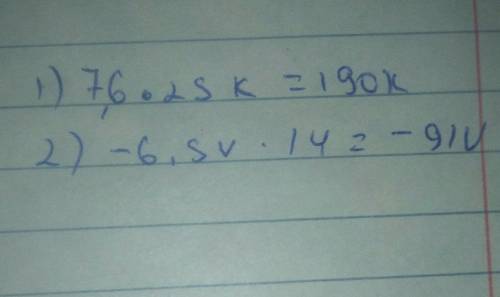 1) 7,6 · 25 k = 190k
2) -6,5v · 14 = -91v